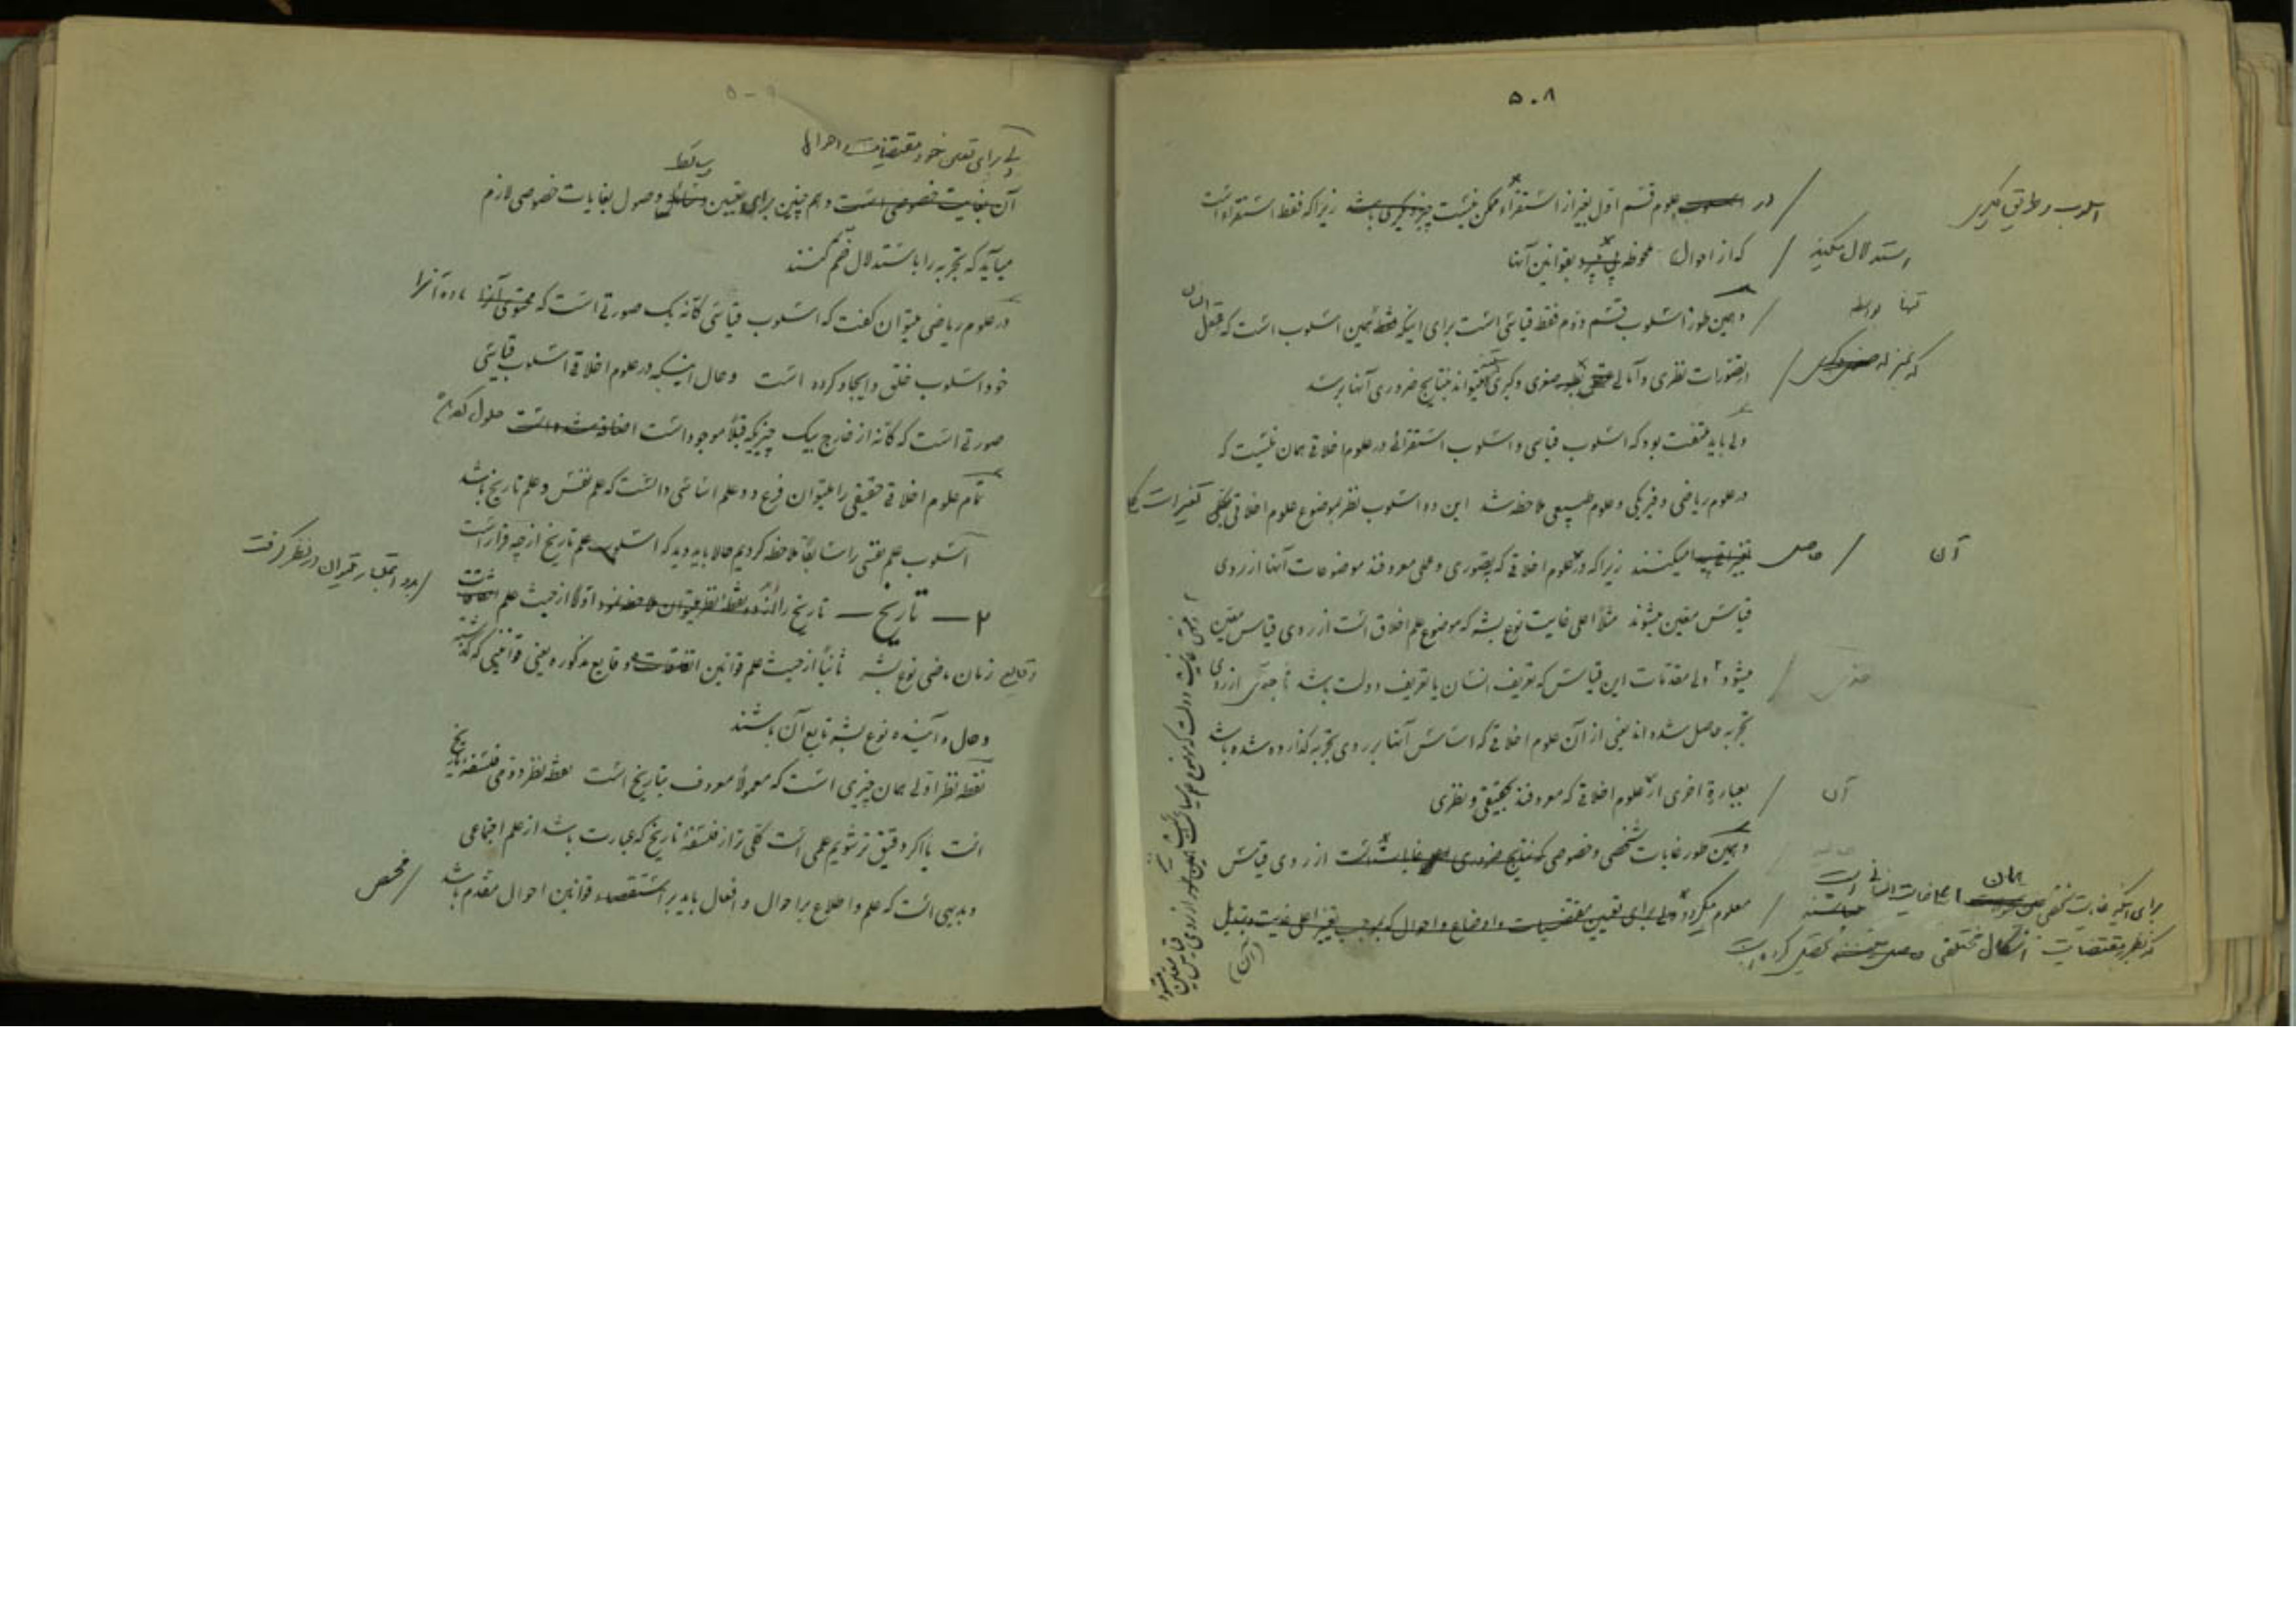 ۵۰۸
در اسلوب علوم قسم اول بغیر از استقراء ممکن نیست چیز دیگری باشد زیرا که فقط استقراء است
اسلوب و طریق دیگری
که از احوال ملحوظه پی میبرد بقوانین آنها
استدلال میکنیم
و همین طور اسلوب قسم دوم فقط قیاسی است برای اینکه فقط همین اسلوب است که عقل انسان
تنها بواسطه
در تصورات نظری و آمالی صغری و کبری میتواند بنتایج ضروری آنها برسد
که بمنزله
ولی باید ملتفت بود که اسلوب قیاسی و اسلوب استقرائی در علوم اخلاقی همان نیست که
در علوم ریاضی و فیزیکی و علوم طبیعی ملاحظه شد این دو اسلوب نظر بموضوع علوم اخلاقی تغییرات کلی
پیدا میکنند زیرا که در علوم اخلاقی که بتصوری و عملی معروفند موضوعات آنها از روی
حاصل
آن
قیاس معین میشوند مثلاً اعلی غایت نوع بشر که موضوع علم اخلاق است از روی قیاس معین
میشود ۲ ولی مقدمات این قیاس که تعریف انسان یا تعریف دولت باشد از روی
تجربه حاصل شده اند یعنی از آن علوم اخلاقی که اساس آنها بر روی تجربه گذارده شده باشد
بعبارة اخری از علوم اخلاقی که معروفند بحقیقی و نظری
آن
و همین طور غایات شخصی و خصوصی که نتایج ضروری غایات است از روی قیاس
معلوم میگردد ولی برای تعیین مقتضیات و اوضاع و احوال که بموجب تغییر اعلی غایت و تبدیل
(آن)
برای اینکه غایت شخصی همان اعلی غایت انسانی است
که نظر بمقتضیات اشکال مختلفی تحصیل کرده است
۲ و همین غایت دولت که موضوع علم سیاسی است همین طور از روی قیاس معین میشود
۵۰۹
ولی برای تعیین خود مقتضیات و احوال
وسائط
آن غایت خصوصی است و هم چنین برای تعیین وسائل وصول بغایات خصوصی لازم
میآید که تجربه را باستدلال ضم کنند
در علوم ریاضی میتوان گفت که اسلوب قیاسی کأنه یک صورتی است که محتوی آنرا ماده آنرا
خود اسلوب خلق و ایجاد کرده است و حال اینکه در علوم اخلاقی اسلوب قیاسی
صورتی است که کأنه از خارج بیک چیزیکه قبلاً موجود است اضافه شده است حلول کرده
تمام علوم اخلاقی حقیقی را میتوان فرع دو علم اساسی دانست که علم نفس و علم تاریخ باشد
اسلوب علم نفس را سابقاً ملاحظه کردیم حالا باید دید که اسلوب علم تاریخ از چه قرار است
۲ — تاریخ — تاریخ را از دو نقطه نظر میتوان ملاحظه نمود اولاً از حیث علم
بدو اعتبار میتوان در نظر گرفت
وقایع زمان ماضی نوع بشر ثانیاً از حیث علم قوانین اتفاقات و وقایع مذکوره یعنی قوانینی که گذشته
و حال و آینده نوع بشر تابع آن باشند
نقطه نظر اولی همان چیزی است که معمولاً معروف بتاریخ است نقطه نظر دومی فلسفه تاریخ
است یا اگر دقیق تر شویم علمی است کلی تر از فلسفه تاریخ که عبارت باشد از علم اجتماعی
و بدیهی است که علم و اطلاع بر احوال و افعال باید بر استقصاء قوانین احوال مقدم باشد
فحص